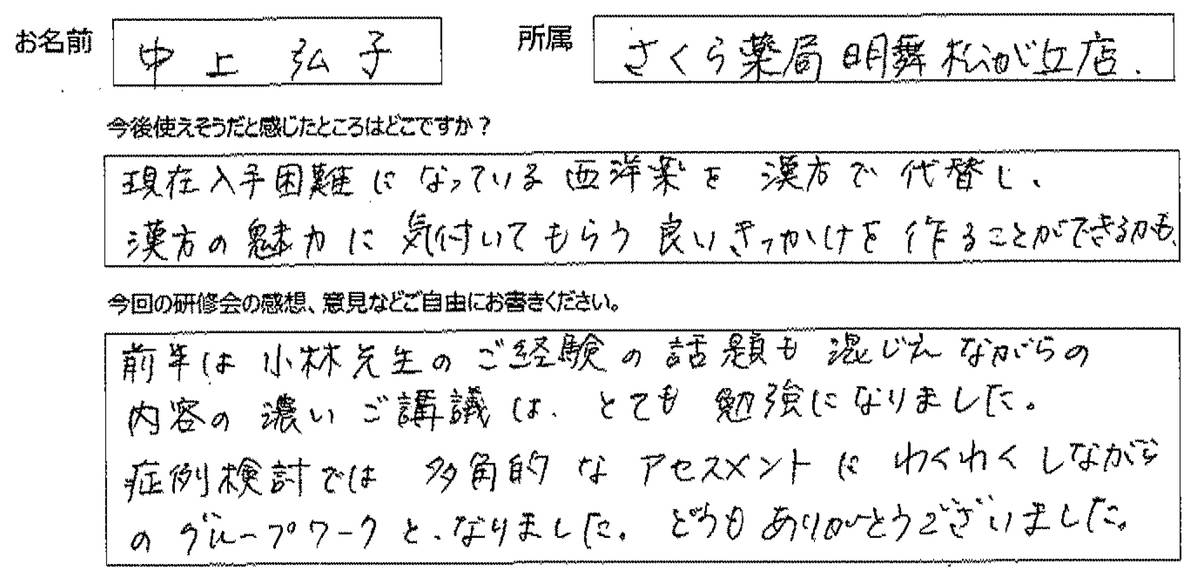 お名前 中上 弘子 所属 さくら薬局 明舞松が丘店.
今後使えそうだと感じたところはどこですか？
現在入手困難になっている西洋薬を漢方で代替し、
漢方の魅力に気付いてもらう良いきっかけを作ることができるかも、
今回の研修会の感想、意見などご自由にお書きください。
前半は小林先生のご経験の話題も混じえながらの
内容の濃いご講議は、とても勉強になりました。
症例検討では多角的なアセスメントにわくわくしながら
のグループワークと、なりました。どうもありがとうございました。